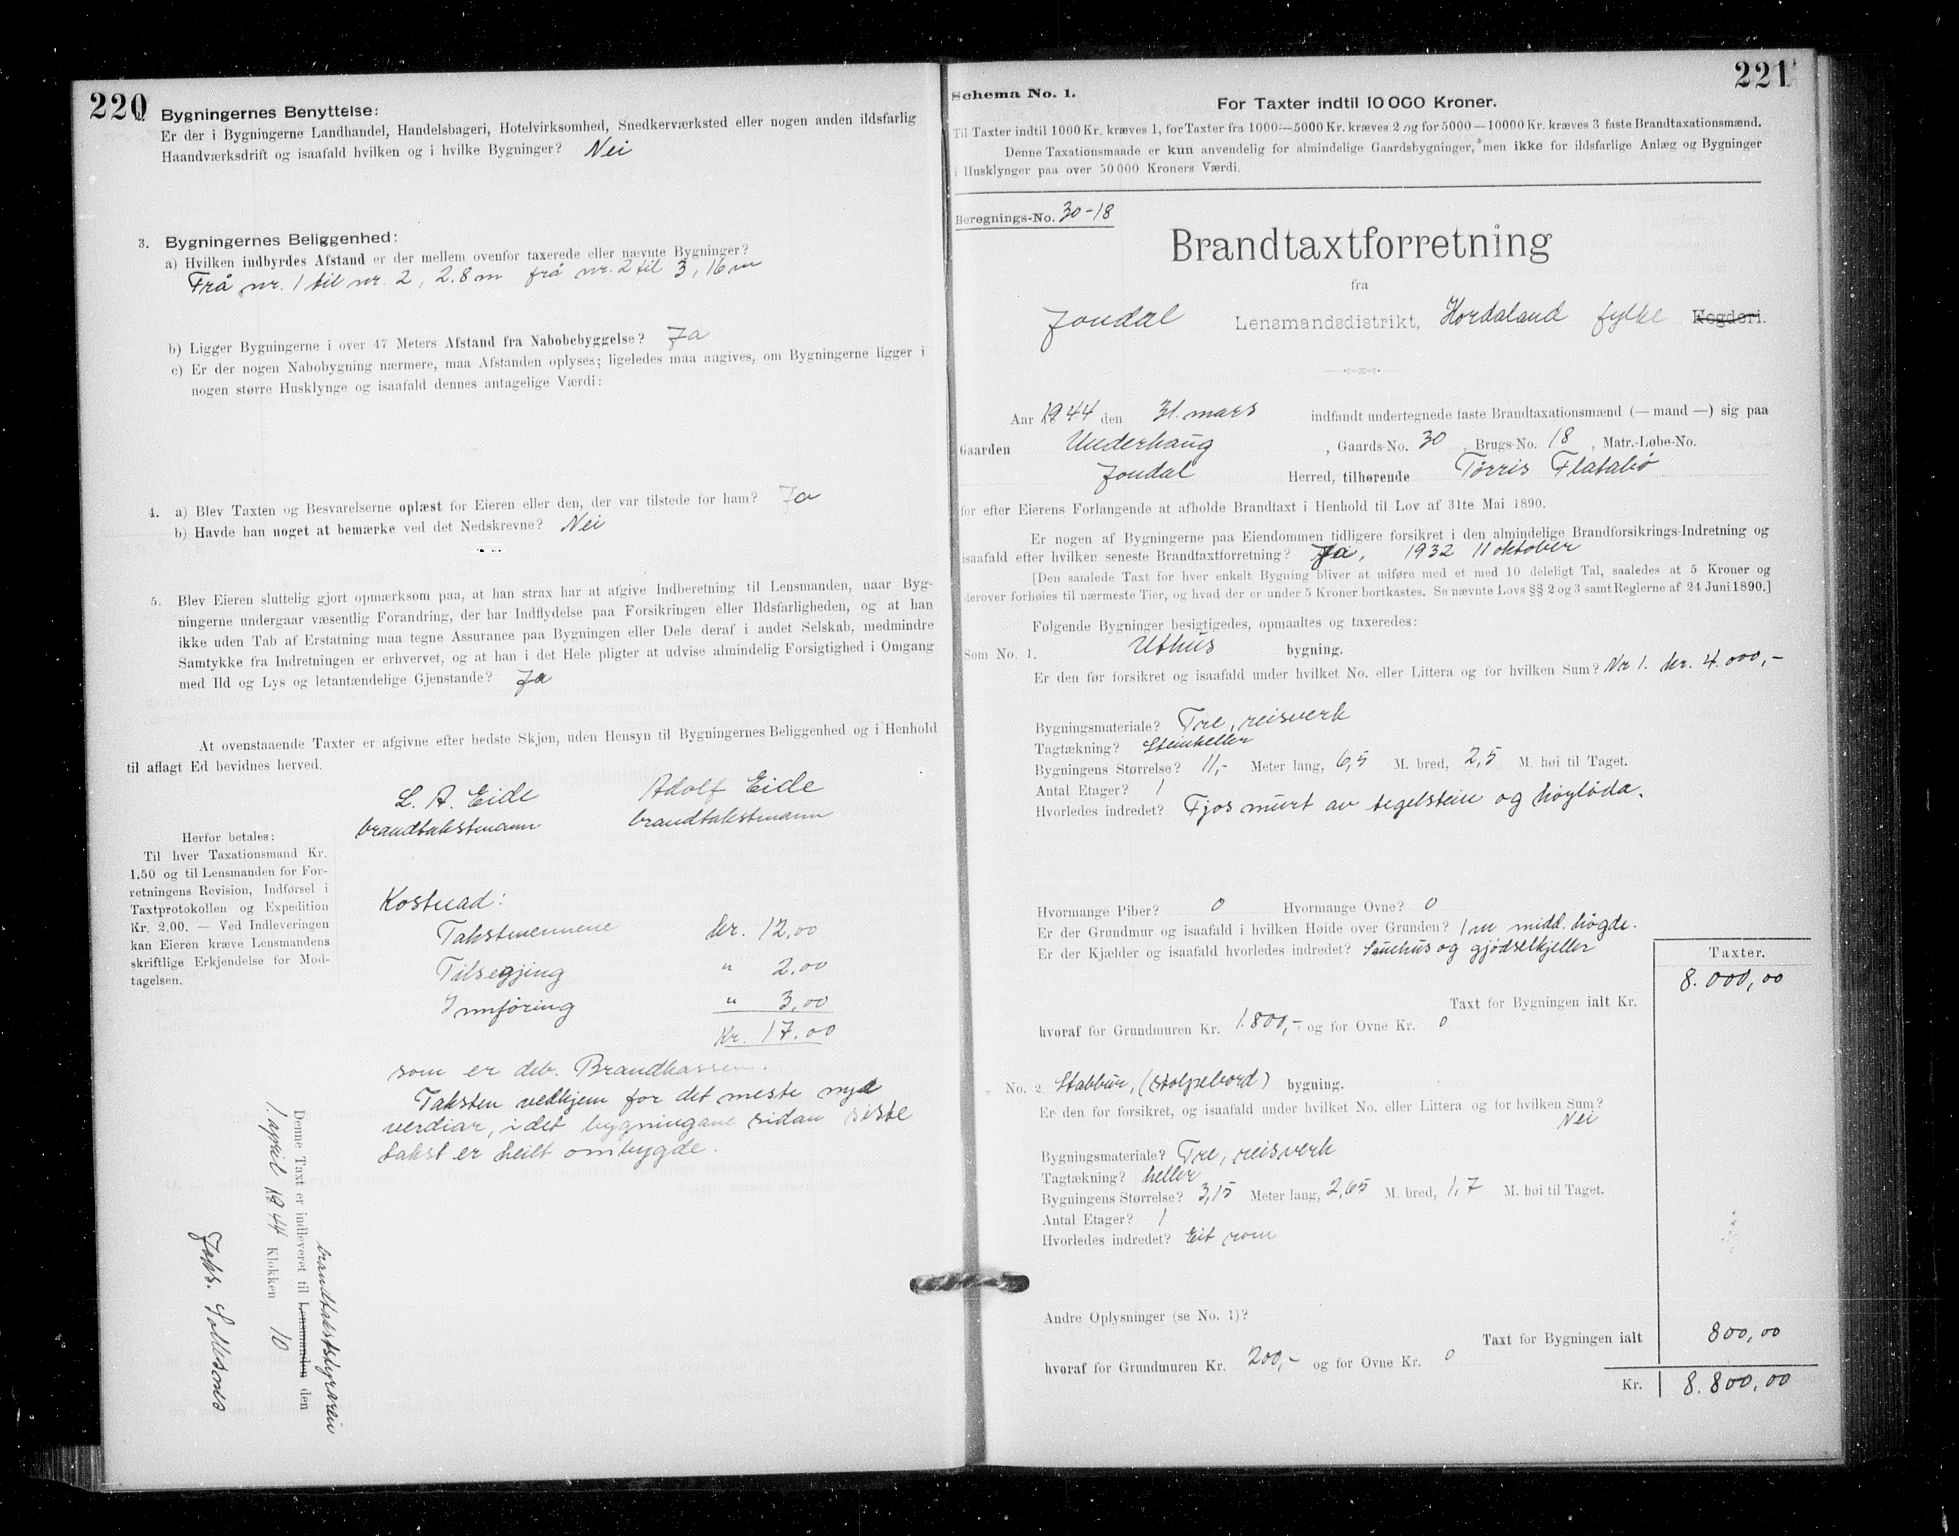 220
Bygningernes Benyttelse:
Er der i Bygningerne Landhandel, Handelsbageri, Hotelvirksomhed, Snedkerværksted eller nogen anden ildsfarlig
Haandværksdrift og isaafald hvilken og i hvilke Bygninger? Nei
3. Bygningernes Beliggenhed:
a) Hvilken indbyrdes Afstand er der mellem ovenfor taxerede eller nævnte Bygninger?
Frå nr. 1 til nr. 2, 2.8 m frå nr. 2 til 3, 16 m
b) Ligger Bygningerne i over 47 Meters Afstand fra Nabobebyggelse? Ja
c) Er der nogen Nabobygning nærmere, maa Afstanden oplyses; ligeledes maa angives, om Bygningerne ligger i
nogen større Husklynge og isaafald dennes antagelige Værdi:
4. a) Blev Taxten og Besvarelserne oplæst for Eieren eller den, der var tilstede for ham? Ja
b) Havde han noget at bemærke ved det Nedskrevne? Nei
5. Blev Eieren sluttelig gjort opmærksom paa, at han strax har at afgive Indberetning til Lensmanden, naar Byg-
ningerne undergaar væsentlig Forandring, der har Indflydelse paa Forsikringen eller Ildsfarligheden, og at han
ikke uden Tab af Erstatning maa tegne Assurance paa Bygningen eller Dele deraf i andet Selskab, medmindre
Samtykke fra Indretningen er erhvervet, og at han i det Hele pligter at udvise almindelig Forsigtighed i Omgang
med Ild og Lys og letantændelige Gjenstande? Ja
At ovenstaaende Taxter er afgivne efter bedste Skjøn, uden Hensyn til Bygningernes Beliggenhed og i Henhold
til aflagt Ed bevidnes herved.
L. A. Eide Adolf Eide
brandtakstmann brandtakstmann
Herfor betales:
Til hver Taxationsmand Kr.
1.50 og til Lensmanden for For-
retningens Revision, Indførsel i
Taxtprotokollen og Expedition
Kr. 2,00. — Ved Indleveringen
kan Eieren kræve Lensmandens
skriftlige Erkjendelse for Mod-
tagelsen.
Kostnad:
Takstmennene kr. 12,00
Tilsegjing " 2,00
Innføring " 3,00
Kr. 17.00
som er deb. Brandkassen.
Taksten vedkjem for det meste nye
verdiar, i det bygningane sidan siste
takst er heilt ombygde.
Denne Taxt er indleveret til Lensmanden den
brandtakststyraren
1. april 1944 Klokken 10
221
Schema No. 1.
For Taxter indtil 10 000 Kroner.
Til Taxter indtil 1000 Kr. kræves 1, for Taxter fra 1000—5000 Kr. kræves 2 og for 5000—10000 Kr. kræves 3 faste Brandtaxationsmænd.
Denne Taxationsmaade er kun anvendelig for almindelige Gaardsbygninger, men ikke for ildsfarlige Anlæg og Bygninger
i Husklynger paa over 50 000 Kroners Værdi.
Beregnings-No. 30-18
Brandtaxtforretning
fra
Jondal Lensmandsdistrikt, Hordaland fylke Fogderi.
Aar 1944 den 31. mars indfandt undertegnede faste Brandtaxationsmænd (— mand —) sig paa
Gaarden Underhaug, Gaards-No. 30, Brugs-No. 18, Matr.-Løbe-No.
Jondal Herred, tilhørende Tørris Flatabø
for efter Eierens Forlangende at afholde Brandtaxt i Henhold til Lov af 31te Mai 1890.
Er nogen af Bygningerne paa Eiendommen tidligere forsikret i den almindelige Brandforsikrings-Indretning og
isaafald efter hvilken seneste Brandtaxtforretning? Ja, 1932 11 oktober
[Den samlede Taxt for hver enkelt Bygning bliver at udføre med et med 10 deleligt Tal, saaledes at 5 Kroner og
derover forhøies til nærmeste Tier, og hvad der er under 5 Kroner bortkastes. Se nævnte Lovs §§ 2 og 3 samt Reglerne af 24 Juni 1890.]
Følgende Bygninger besigtigedes, opmaaltes og taxeredes:
Som No. 1. Uthus bygning.
Er den før forsikret og isaafald under hvilket No. eller Littera og for hvilken Sum? Nr 1. kr. 4.000,-
Bygningsmateriale? Tre, reisverk
Tagtækning? Steinheller
Bygningens Størrelse? 11,- Meter lang, 6,5 M. bred, 2,5 M. høi til Taget.
Antal Etager? 1
Hvorledes indredet? Fjos murt av tegelstein og høyløda.
Hvormange Piber? 0 Hvormange Ovne? 0
Er der Grundmur og isaafald i hvilken Høide over Grunden? 1 m midd. høgde.
Er der Kjælder og isaafald hvorledes indredet? Sauhus og gjødselkjeller
Taxter.
8.000,00
Taxt for Bygningen ialt Kr.
hvoraf for Grundmuren Kr. 1.800,- og for Ovne Kr. 0
No. 2 Stabbur, (stolpebord) bygning.
Er den før forsikret, og isaafald under hvilket No. eller Littera og for hvilken Sum?
Nei
Bygningsmateriale? Tre, reisverk
Tagtækning? heller
Bygningens Størrelse? 3,15 Meter lang, 2,65 M. bred, 1,7 M. høi til Taget.
Antal Etager? 1
Hvorledes indredet? Eit rom
Andre Oplysninger (se No. 1)?
Taxt for Bygningen ialt 800,00
hvoraf for Grundmuren Kr. 200,- og for Ovne Kr. 0
Kr. 8.800,00